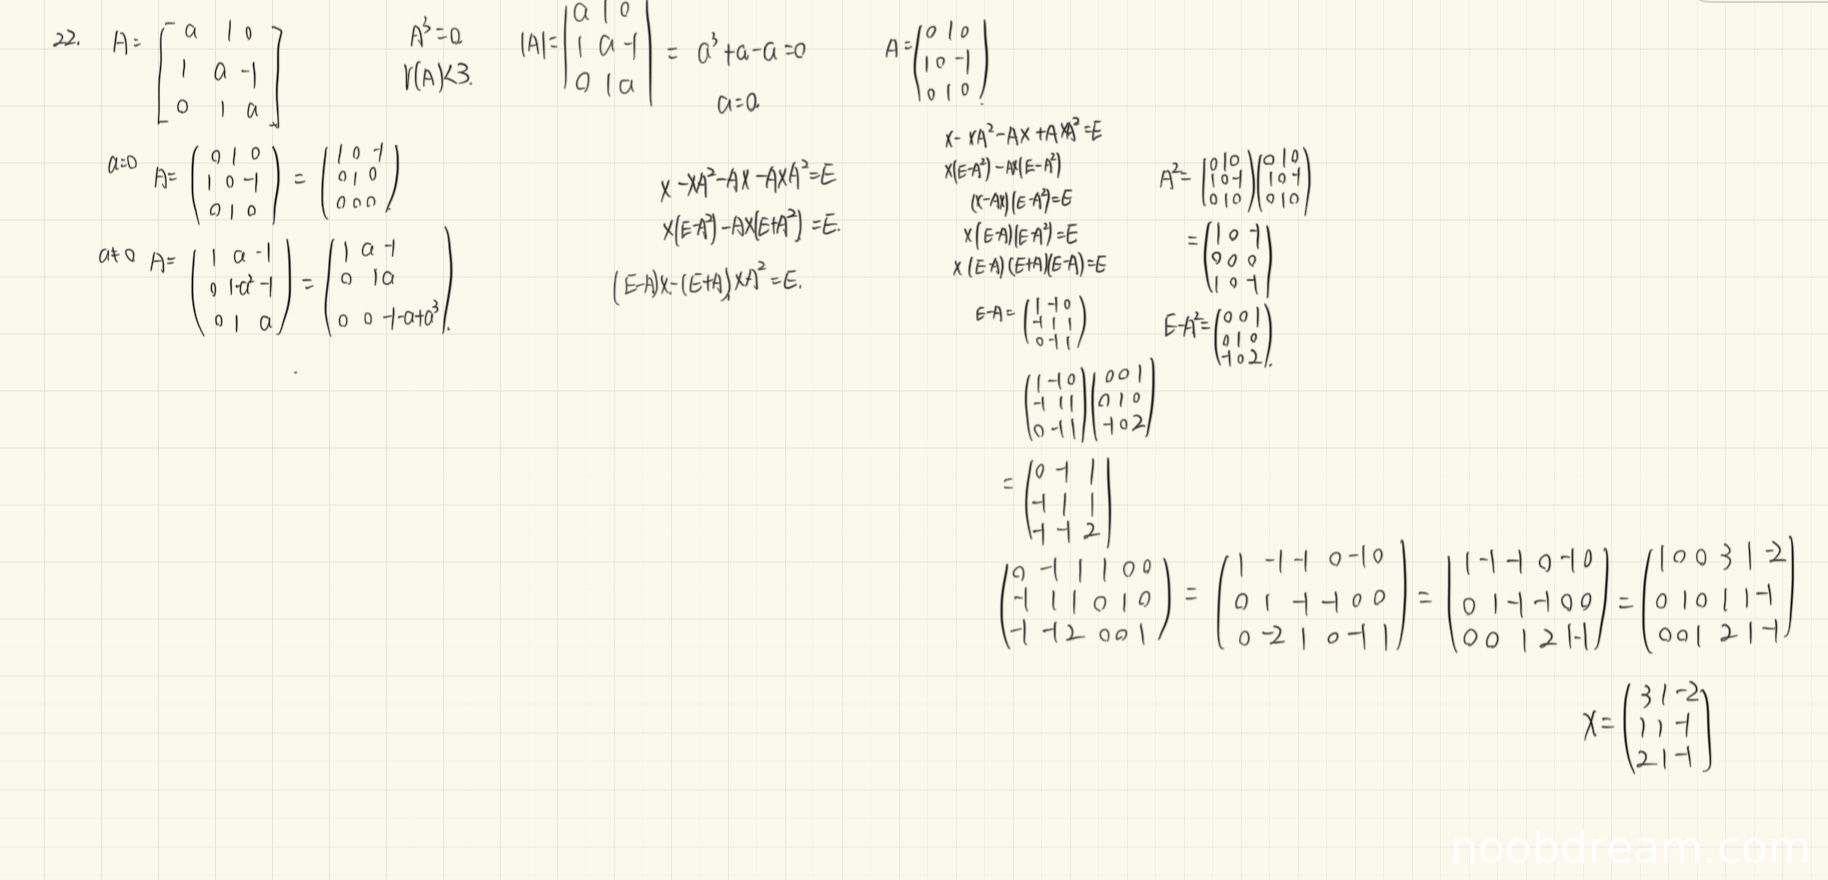 22. A= [a 1 0
1 a -1
0 1 a]
A³=0
r(A)<3.
|A|= |a 1 0
1 a -1
0 1 a| = a³+a-a=0
a=0
A= (0 1 0
1 0 -1
0 1 0)
a=0 A= (0 1 0
1 0 -1
0 1 0) = (1 0 -1
0 1 0
0 0 0)
a≠0 A= (1 a -1
0 1-a² -1
0 1 a) = (1 a -1
0 1 a
0 0 -1-a+a³).
X-XA²-AX-AXA²=E
X(E-A²)-AX(E+A²)=E.
(E-A)X-(E+A)XA²=E.
X-XA²-AX+AXA²=E
X(E-A²)-AX(E-A²)
(X-AX)(E-A²)=E
X(E-A)(E-A²)=E
X(E-A)(E+A)(E-A)=E
E-A= (1 -1 0
-1 1 1
0 -1 1)
A²= (0 1 0
1 0 -1
0 1 0) (0 1 0
1 0 -1
0 1 0)
= (1 0 -1
0 0 0
1 0 -1)
E-A²= (0 0 1
0 1 0
-1 0 2).
(1 -1 0
-1 1 1
0 -1 1) (0 0 1
0 1 0
-1 0 2)
= (0 -1 1
-1 1 1
-1 -1 2)
(0 -1 1 1 0 0
-1 1 1 0 1 0
-1 -1 2 0 0 1) = (1 -1 -1 0 -1 0
0 1 -1 -1 0 0
0 -2 1 0 -1 1) = (1 -1 -1 0 -1 0
0 1 -1 -1 0 0
0 0 1 2 1 -1) = (1 0 0 3 1 -2
0 1 0 1 1 -1
0 0 1 2 1 -1)
X= (3 1 -2
1 1 -1
2 1 -1)
noobdream.com